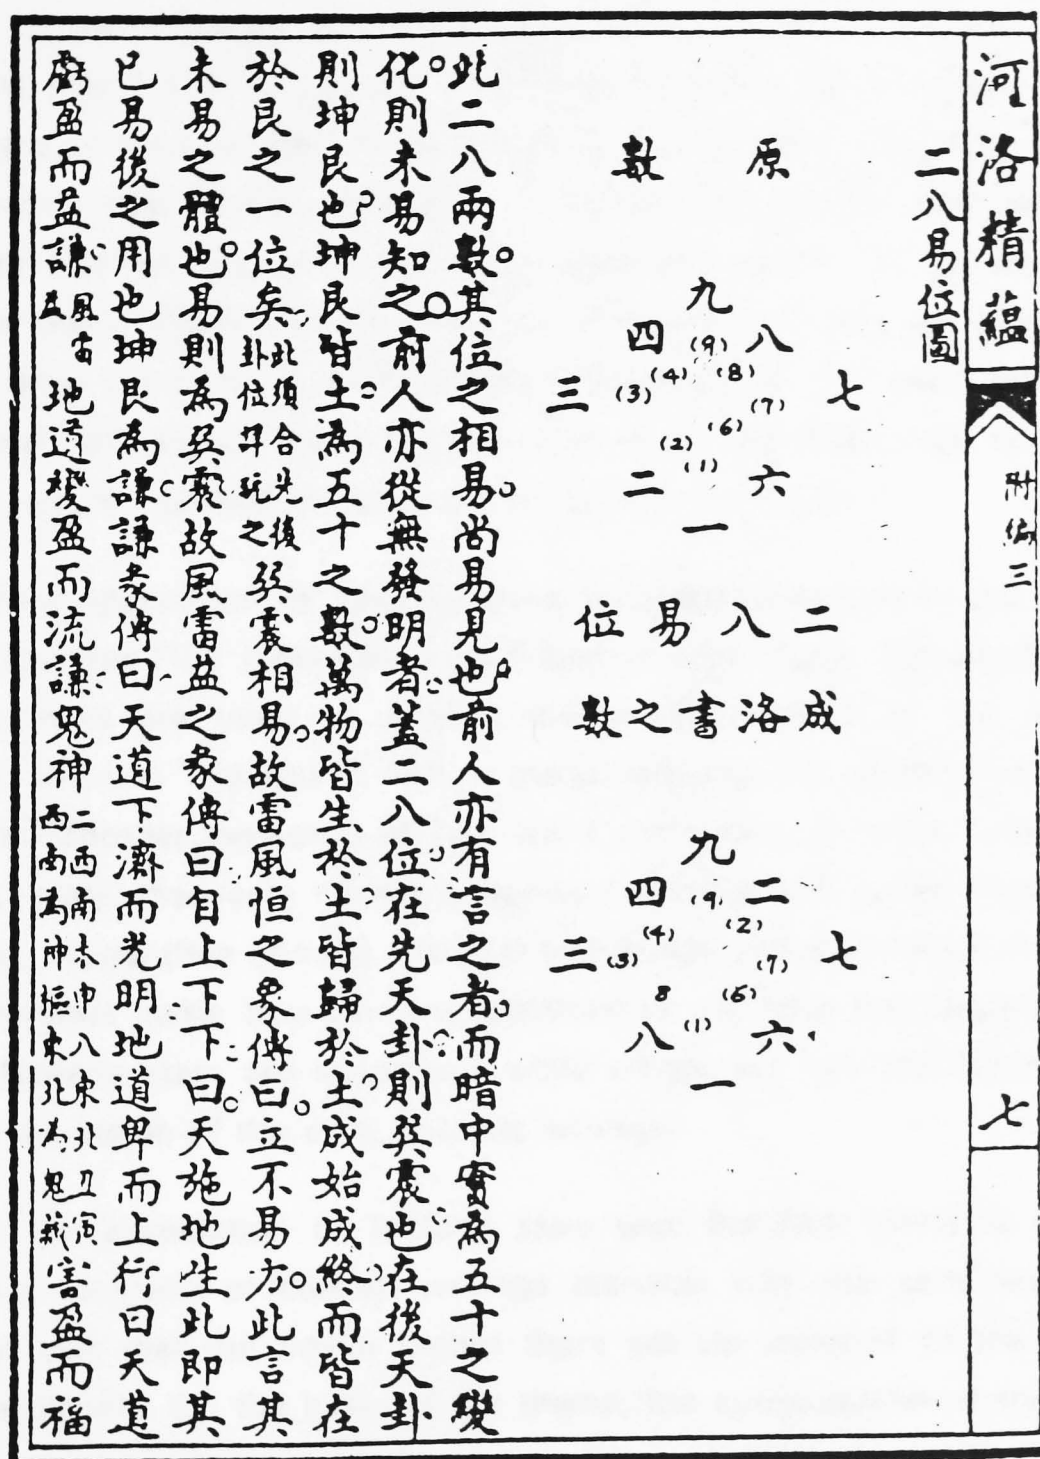 河洛精蘊
附編三
七
二八易位圖
原數
九
四 (9) 八
(4) (8)
三 (3) (7) 七
(2) (6)
二 (1) 六
一
二八易位
成洛書之數
九
四 (9) 二
(4) (2)
三 (3) (7) 七
8 (6)
八 (1) 六
一
此二八兩數其位之相易尚易見也前人亦有言之者而暗中實為五十之變
化則未易知之前人亦從無發明者蓋二八位在先天卦則巽震也在後天卦
則坤艮也坤艮皆土為五十之數萬物皆生於土皆歸於土成始成終而皆在
於艮之一位矣此須合先後卦位詳玩之巽震相易故雷風恒之象傳曰立不易方此言其
未易之體也易則為巽震故風雷益之彖傳曰自上下下曰天施地生此即其
已易後之用也坤艮為謙謙彖傳曰天道下濟而光明地道卑而上行曰天道
虧盈而益謙風雷益地道變盈而流謙鬼神二西南未申八東北丑寅西南為神樞東北為鬼藏害盈而福